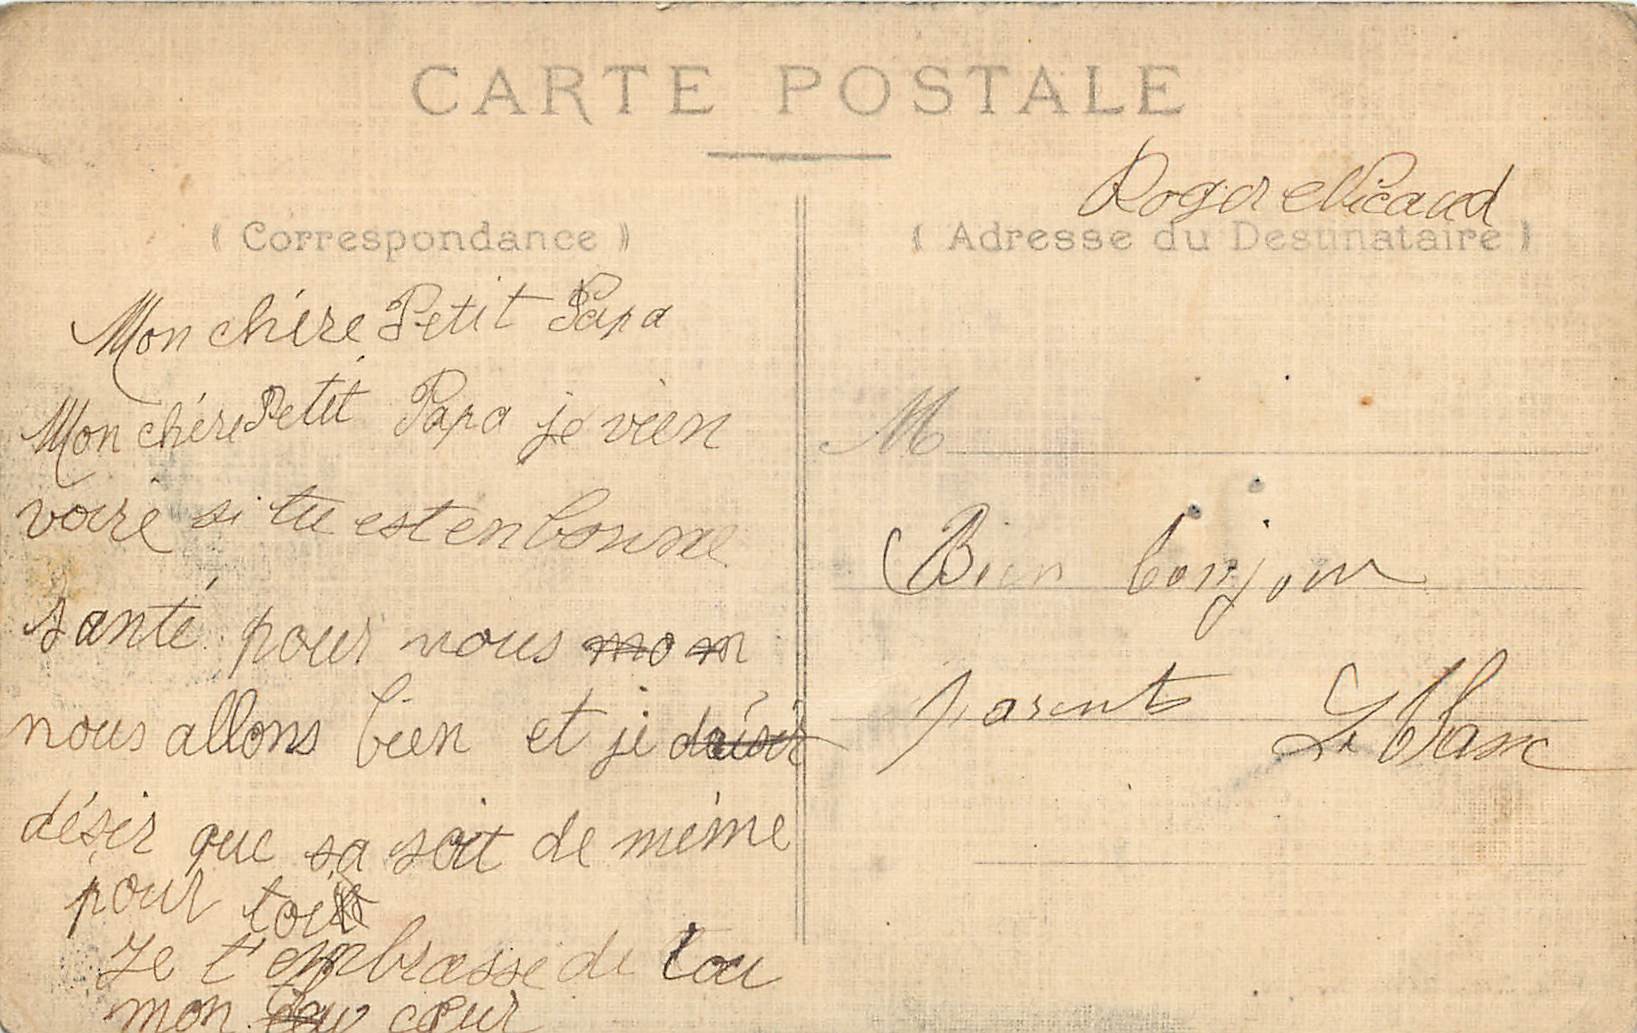 CARTE POSTALE
( Correspondance )
Mon chére Petit Papa
Mon chére Petit Papa je vien
voire si tu est en bonne
santé pour nous
nous allons bien et je
désir que sa soit de méme
pour toi
Je t'embrasse de tou
mon cœur
Roger
( Adresse du Destinataire )
M
Bien bonjour
parents Leblanc